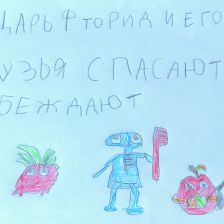 ЦАРЬ ФТОРИД И ЕГО
УЗЬЯ СПАСАЮТ
БЕЖДАЮТ